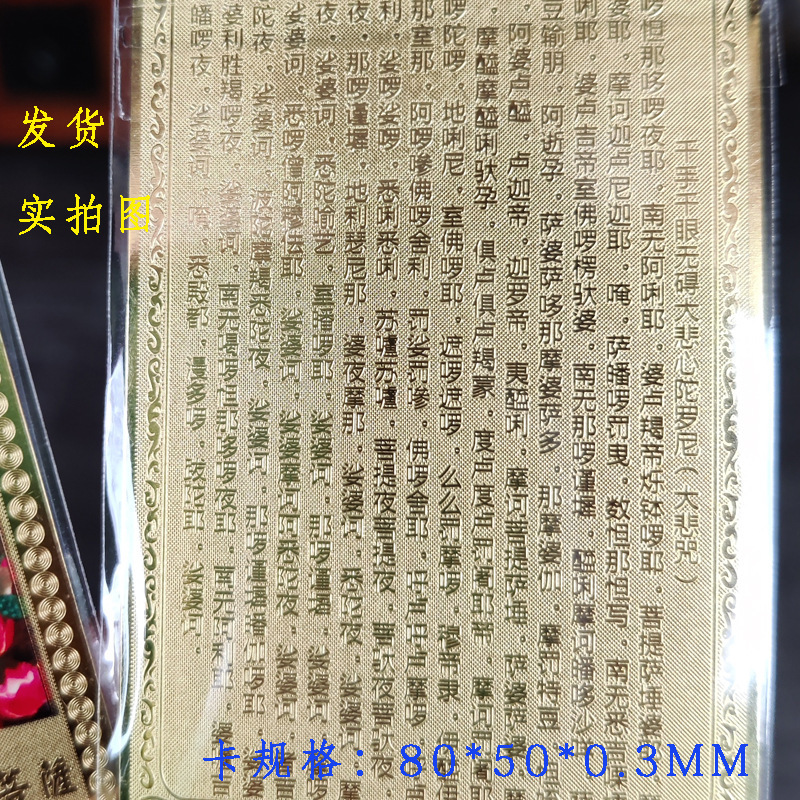 千手千眼无碍大悲心陀罗尼（大悲咒）
啰怛那哆啰夜耶。南无阿唎耶。婆卢羯帝烁钵啰耶。菩提萨埵婆
婆耶。摩诃迦卢尼迦耶。唵。萨皤啰罚曳。数怛那怛写。南无悉吉
唎耶。婆卢吉帝室佛啰楞驮婆。南无那啰谨墀。醯唎摩诃皤哆沙
豆输朋。阿逝孕。萨婆萨哆那摩婆萨多。那摩婆伽。摩罚特豆
阿婆卢醯。卢迦帝。迦罗帝。夷醯唎。摩诃菩提萨埵。萨婆萨
摩醯摩醯唎驮孕。俱卢俱卢羯蒙。度卢度卢罚阇耶帝。摩诃罚阇
啰陀啰。地唎尼。室佛啰耶。遮啰遮啰。么么罚摩啰。穆帝隶。伊
那室那。阿啰嘇佛啰舍利。罚娑罚嘇。佛啰舍耶。呼卢呼卢摩啰。
利。娑啰娑啰。悉唎悉唎。苏嚧苏嚧。菩提夜菩提夜。菩驮夜菩驮夜。
夜。那啰谨墀。地利瑟尼那。婆夜摩那。娑婆诃。悉陀夜。娑婆诃
夜。娑婆诃。悉陀喻艺。室皤啰耶。娑婆诃。那啰谨墀。娑婆诃。
夜。娑婆诃。悉啰僧阿穆佉耶。娑婆诃。娑婆摩诃阿悉陀夜。娑婆诃。
陀夜。娑婆诃。波陀摩羯悉陀夜。娑婆诃。那啰谨墀皤伽啰耶。
婆利胜羯啰夜。娑婆诃。南无喝啰怛那哆啰夜耶。南无阿利耶。婆
皤啰夜。娑婆诃。唵。悉殿都。漫多啰。跋陀耶。娑婆诃。
发货
实拍图
菩萨
卡规格：80*50*0.3MM